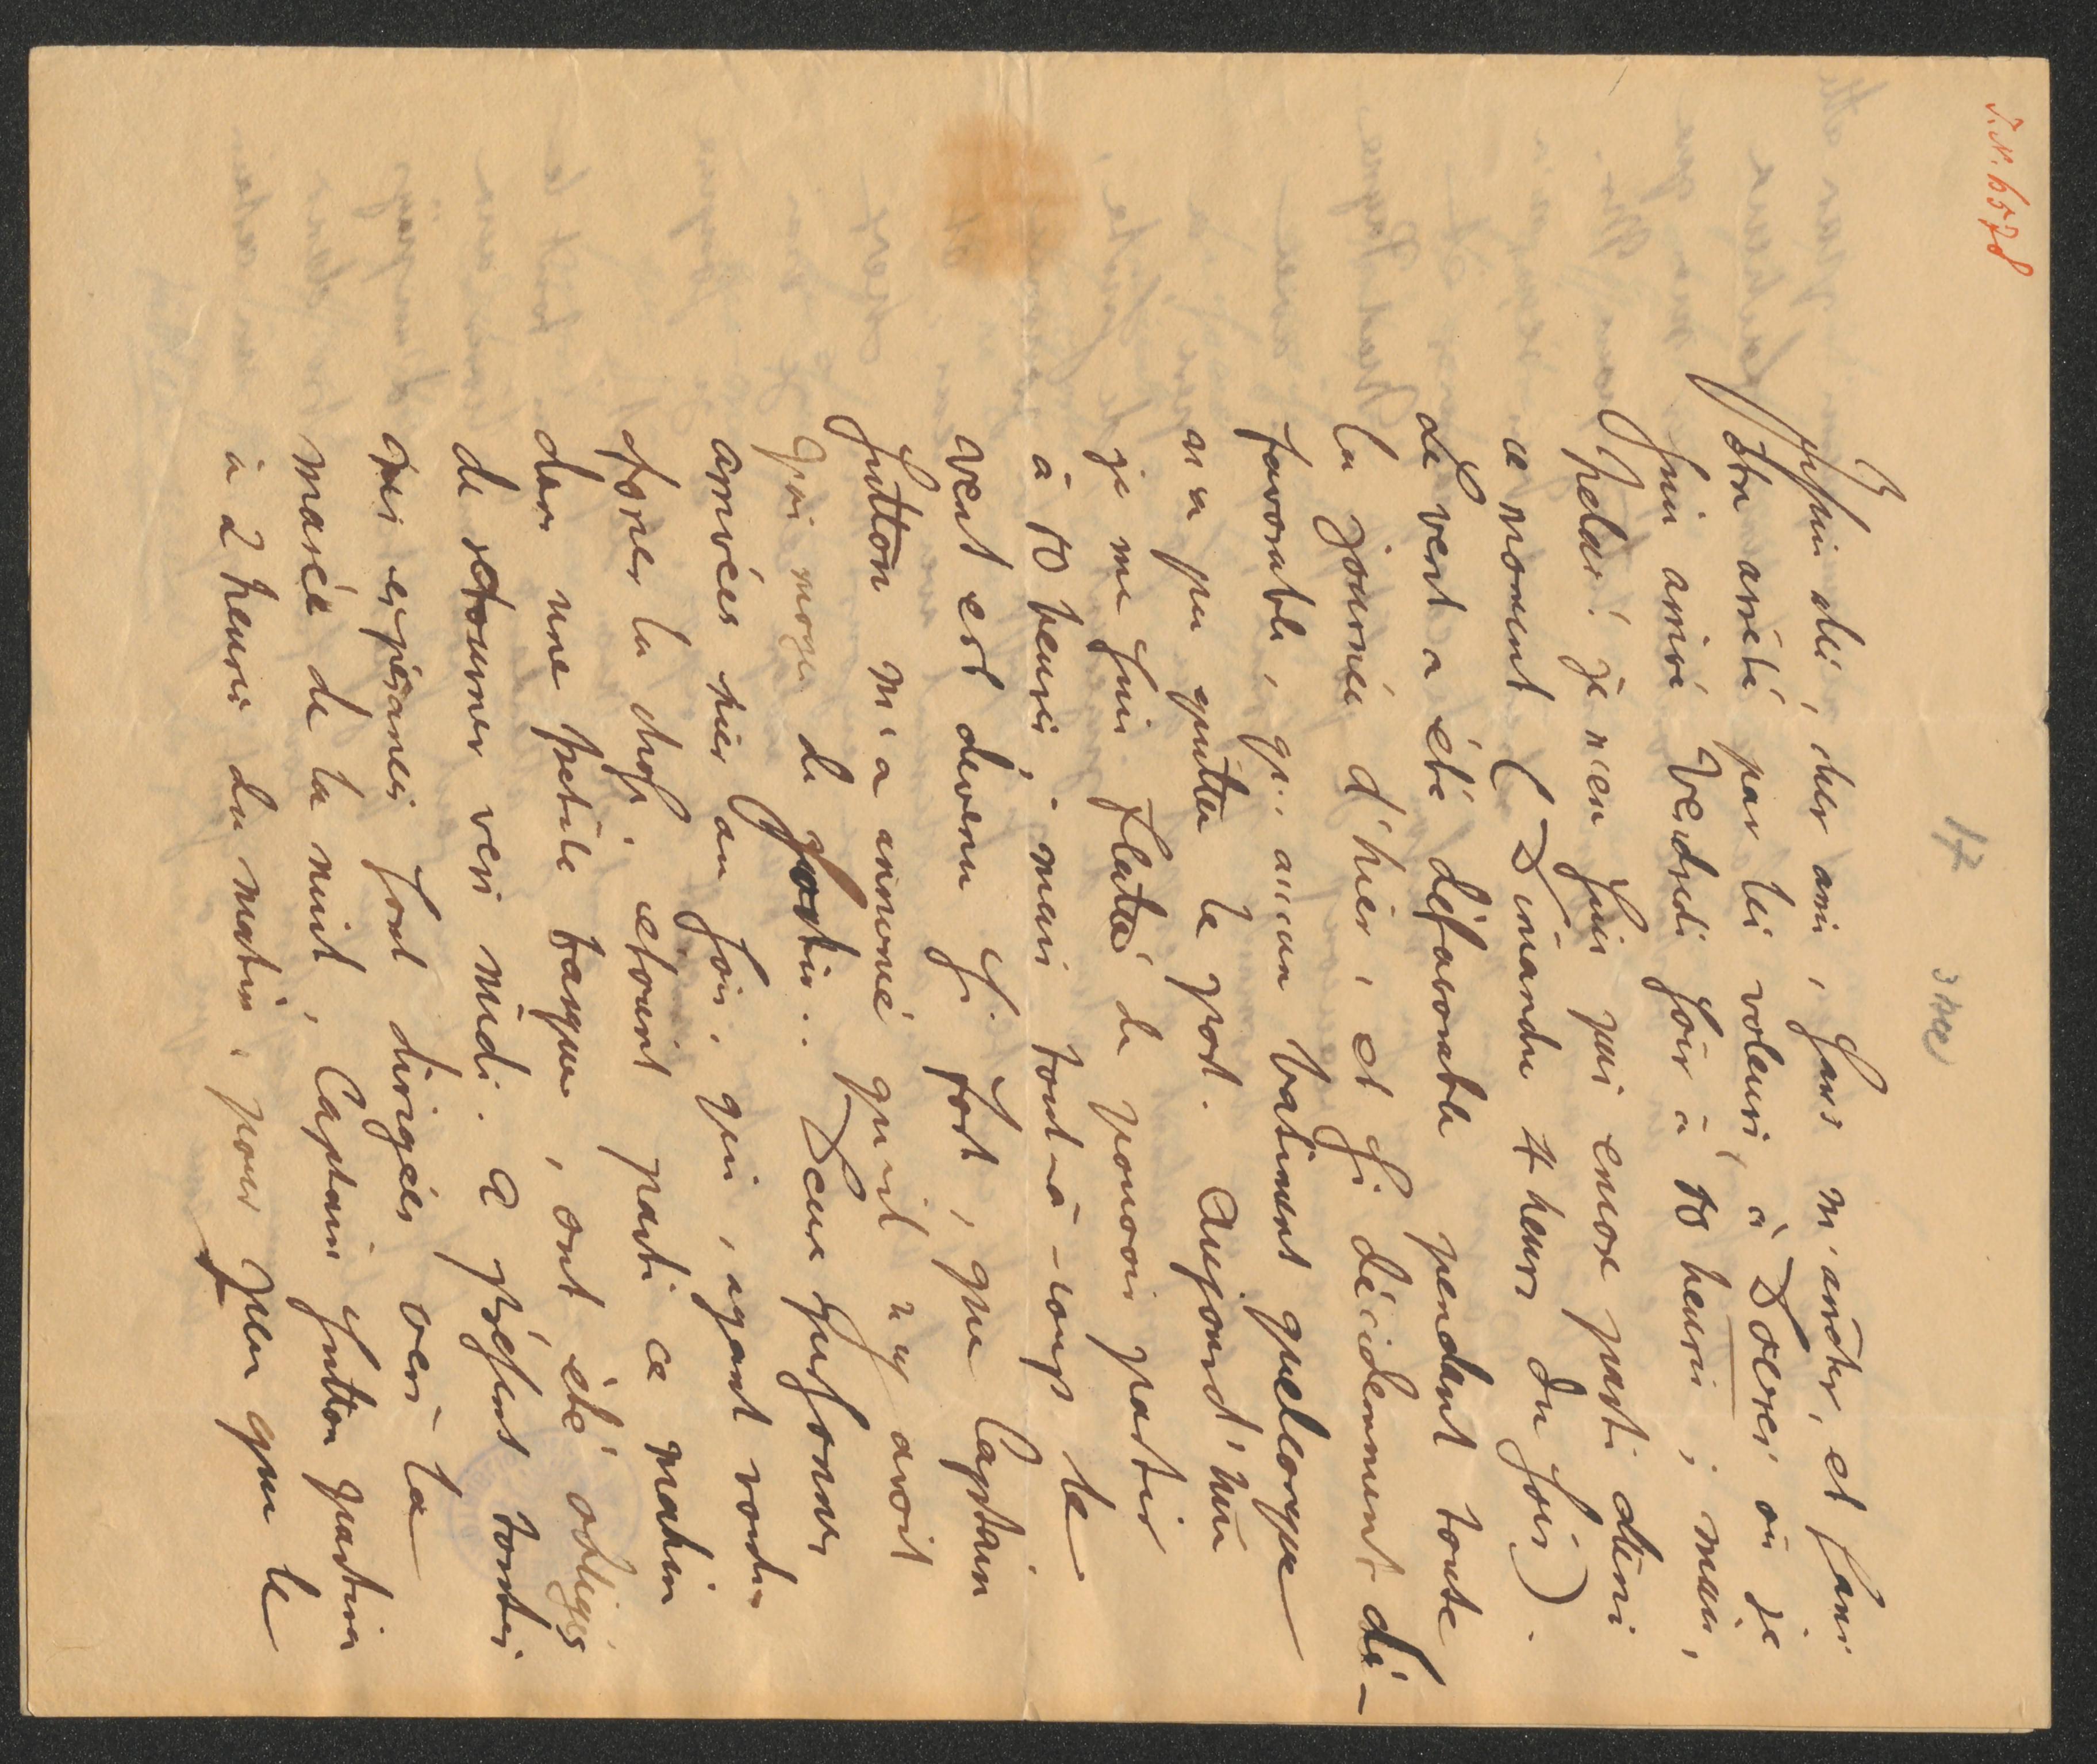 I.N. 6578
17
3 Juce
Je suis allé, cher ami, sans m'arrêter, et sans
être arrêté par les voleurs, à Dovres où je
suis arrivé Vendredi soir à 10 heures; mais,
helas! je n'en suis pas encore parti dans
ce moment (Dimanche 4 heures du soir).
Le vent a été défavorable pendant toute
la journée d'hier, et si décidemment dé-
favorable, qu'aucun batiment quelconque
n'a pu quitter le port. Aujourd'hui
je me suis flatté de pouvoir partir
à 10 heures; mais tout-à-coup le
vent est devenu si fort, que Captain
Sutton m'a annoncé qu'il n'y avoit
pas moyen de sortir. Deux personnes
arrivées hier au soir, qui, ayant voulu
forcer la chose, étoient parti ce matin
dans une petite barque, ont été obligés
de retourner vers midi. a présent toutes
mes espérances sont dirigées vers la
marée de la nuit, Captain Sutton partira
à 2 heures du matin, pour peu que le